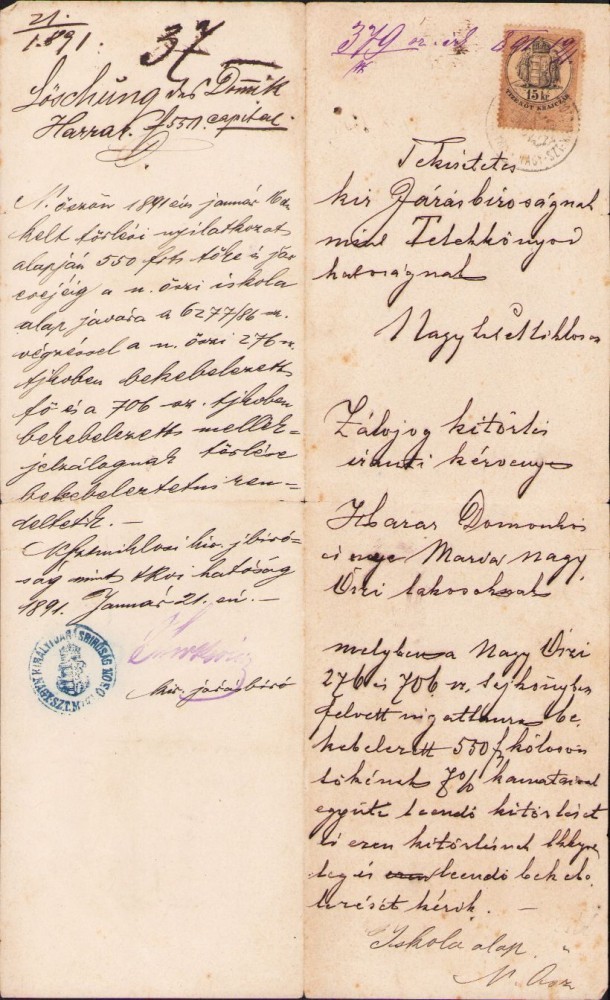 21.
1.891.
37
Löschung des Dominik
Harrar fl 550. capital.
N. öszön 1891 évi január 16án
kelt törlési nyilatkozat
alapján 550 frts tőke és jár
csejéig a n. öszi iskola
alap javára a 6277/86 sz.
végzéssel a n. öszi 276 sz.
tjkvben bekebelezett
fő és a 706 sz. tjkvben
bekebelezett mellék=
jelzálognak törlése
bekebeleztetni ren=
deltetik. —
N.sztmiklósi kir. jbiró=
ság mint tkvi hatóság
1891. Január 21. én. —
kir. járásbiró
KIRÁLYI JÁRÁSBIRÓSÁG
NAGYSZT.MIKLÓS
379
891
15 kr
TIZENÖT KRAJCZÁR
NAGY-SZ
Tekintetes
kir Járásbiróságnak
mint Telekkönyvi
hatóságnak
Nagyszt Miklóson
Zálogjog kitörlés
iránti kérvénye
Harar Domonkos
és neje Maria nagy
Öszi lakosoknak
melyben a Nagy Öszi
276 és 706 sz. tejkönyvben
felvett ingatlanra be
kebelezett 550 f kölcsön
tőkének 7% kamataival
együtt leendő kitörlését
és ezen kitörlésnek
leendő bekebe
lezését kérik. —
Iskola alap
N.